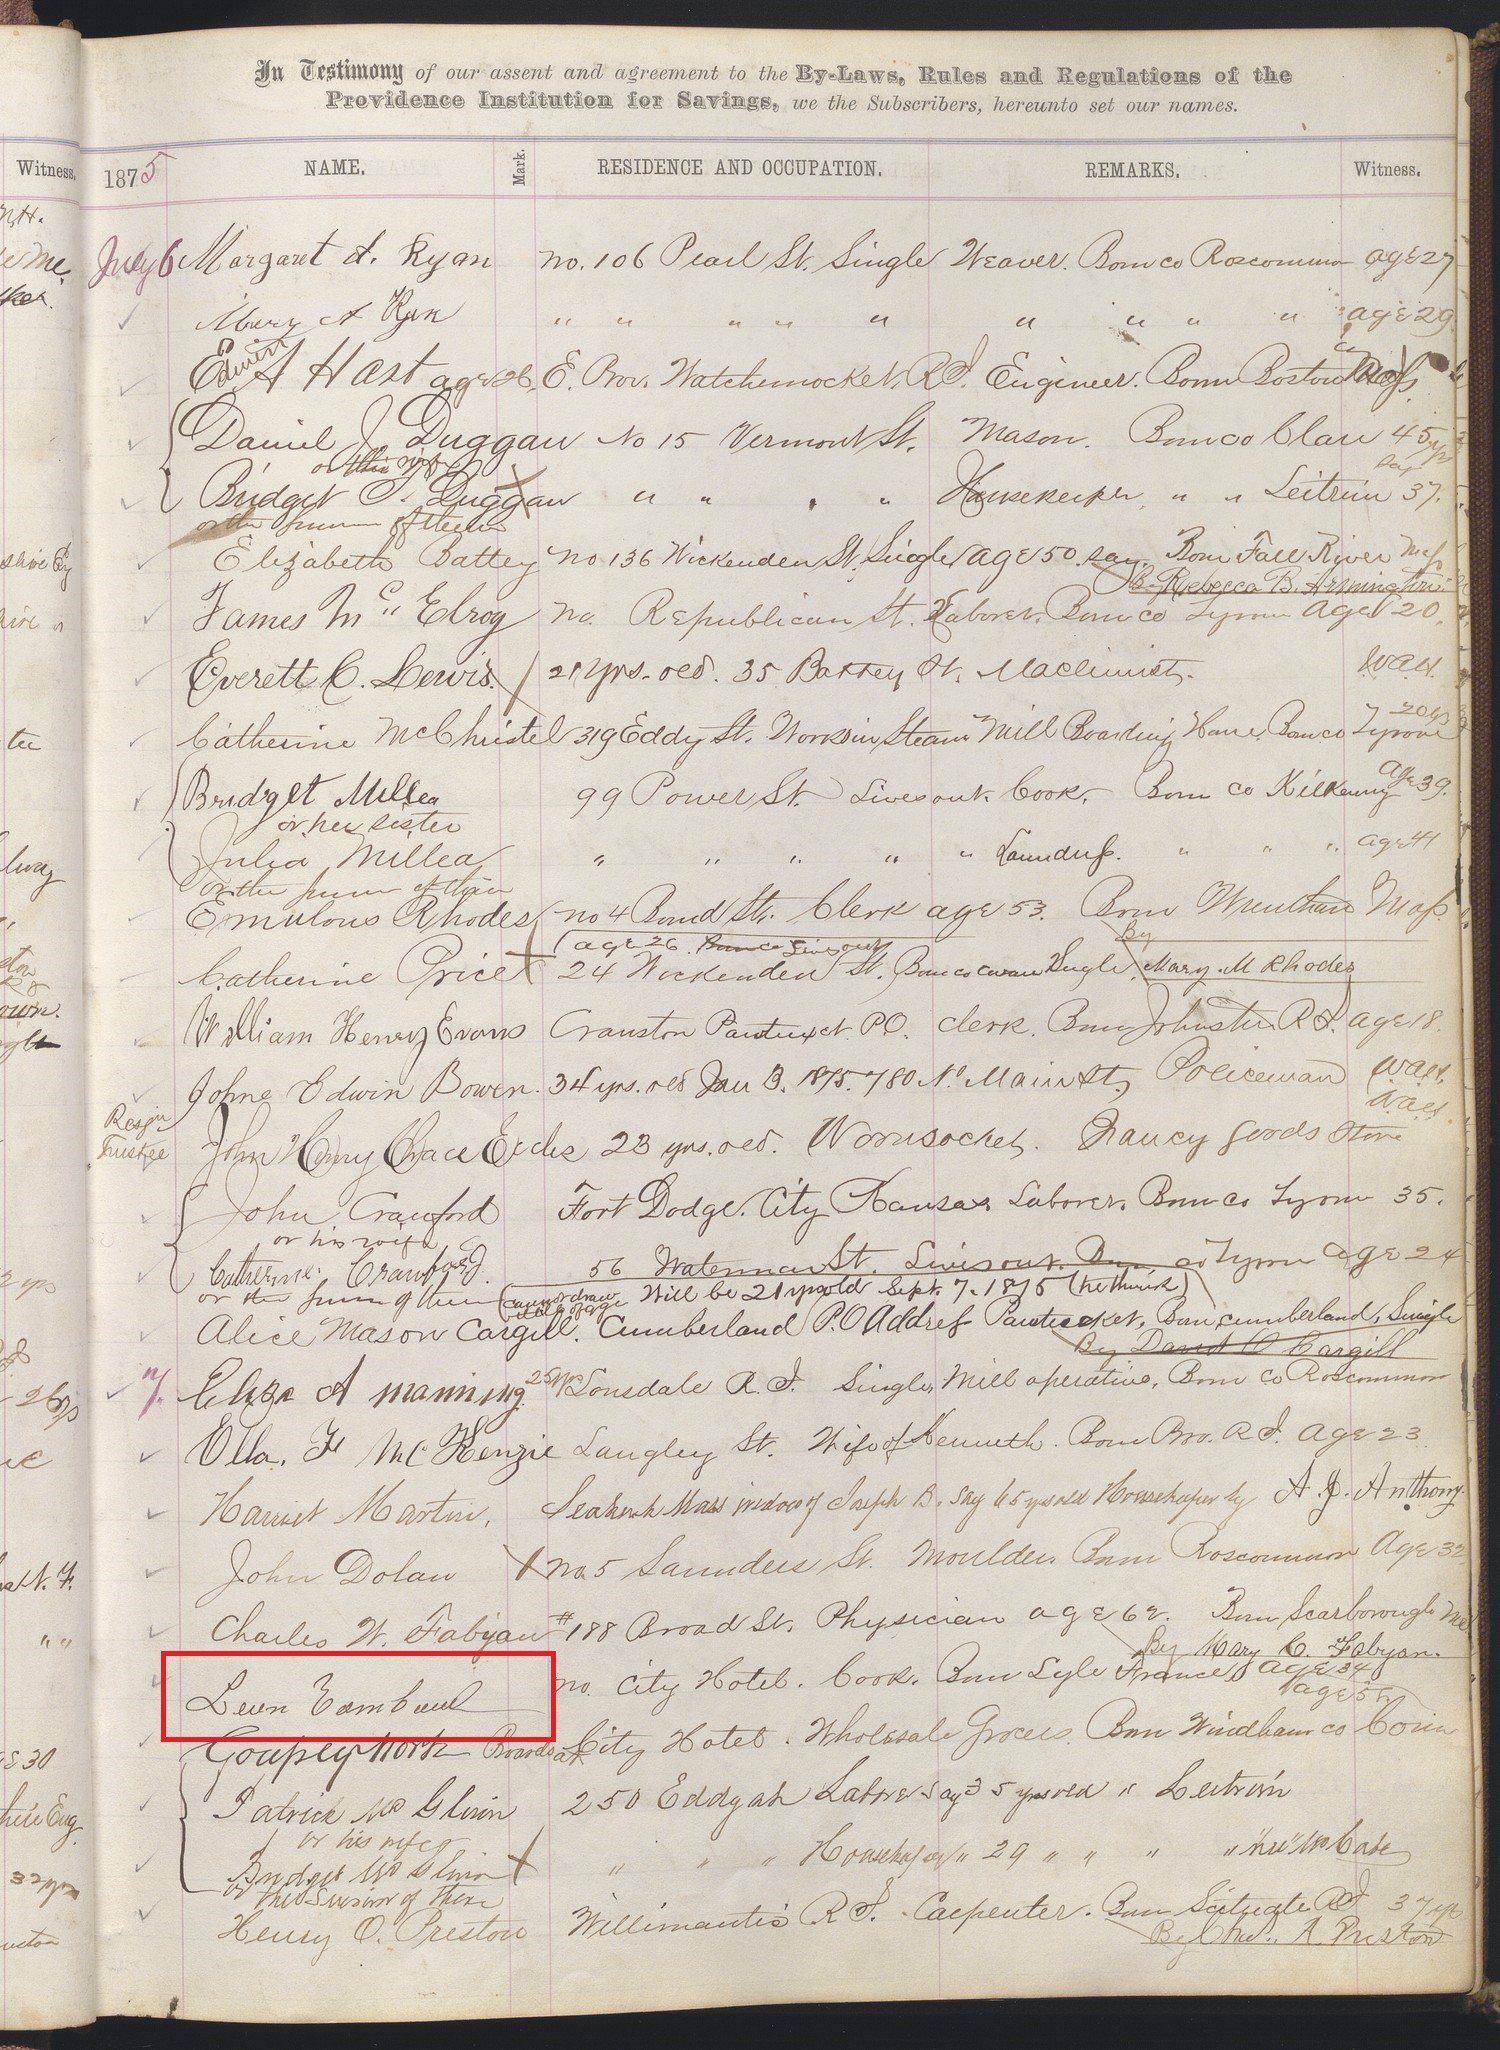 In Testimony of our assent and agreement to the By-Laws, Rules and Regulations of the
Providence Institution for Savings, we the Subscribers, hereunto set our names.
Witness. 1875 NAME. Mark. RESIDENCE AND OCCUPATION. REMARKS. Witness.
July 6 Margaret A. Ryan No. 106 Pearl St. Single Weaver. Born co Roscommon age 27
Mary A Ryan " " " " " " " " " age 29
Edwin A Hast age 26. E. Prov. Watchemocket, R I. Engineer. Born Boston Mass
Daniel J. Duggan No 15 Vermont St. Mason. Born co Clare 45 yrs
or his wife say
Bridget T. Duggan " " " " Housekeeper " " Leitrim 37.
or the survivor of them
Elizabeth Battey No 136 Wickenden St. Single age 50 say. Born Fall River Mass
By Rebecca B. Armington
James Mc"Elroy No. Republican St. Laborer. Born co Tyrone Age 20.
Everett C. Lewis. 21 yrs. old. 35 Battey St. Machinist.
20 yrs
Catherine McChristel 319 Eddy St. Works in Steam Mill Boarding House. Born co Tyrone
Bridget Millea 99 Power St. Lives out. Cook. Born co Kilkenny age 39.
or her sister
Julia Millea " " " " " Laundress. " " " age 41
or the survivor of them
Emulous Rhodes No 4 Bond St. Clerk age 53. Born Wrentham Mass
age 26. Lives out By
Catherine Price 24 Wickenden St. Born co Cavan Single. Mary M Rhodes
William Henry Evans Cranston Pawtuxet P.O. Clerk. Born Johnston R I. age 18.
Johne Edwin Bowen. 34 yrs. old Jan 3. 1875. 780 No Main St, Policeman
Resign
Trustee John Henry Chace 23 yrs. old. Woonsocket. Fancy goods Store
John Crawford Fort Dodge City Kansas Laborer. Born co Tyrone 35.
or his wife
Catherine Crawford. 56 Waterman St. Lives out. Born co Tyrone age 24
or the survivor of them Will be 21 yrs old Sept. 7. 1875 (he think)
Alice Mason Cargill. Cumberland P.O Address Pawtucket, Born Cumberland, Single
By David O Cargill
7. Eliza A Manning. 25 yrs Lonsdale R. I. Single, Mill operative, Born co Roscommon
Ella. F McKenzie Langley St. Wife of Kenneth. Born Pro. R I. age 23
Harriet Martin. Seekonk Mass widow of Joseph B. say 65 yrs old Housekeeper by A. J. Anthony.
John Dolan No. 5 Saunders St. Moulder. Born Roscommon Age 32
Charles W. Fabyan #188 Broad St. Physician age 62. Born Scarborough Me
By Mary C. Fabyan.
Leon No. City Hotel. Cook. Born Lyle France age 34
age 5
North Boards at City Hotel. Wholesale Grocer. Born Windham co Conn
Patrick Mc Glinn 250 Eddy st Laborer say 35 yrs old " Leitrim
or his wife
Bridget Mc Glinn " " " Housekeeper " 29 " " " " nee McCabe
or the survivor of them
Henry O. Preston Willimantic R I. Carpenter. Born Scituate R I 37 yrs
By Chas. A. Preston